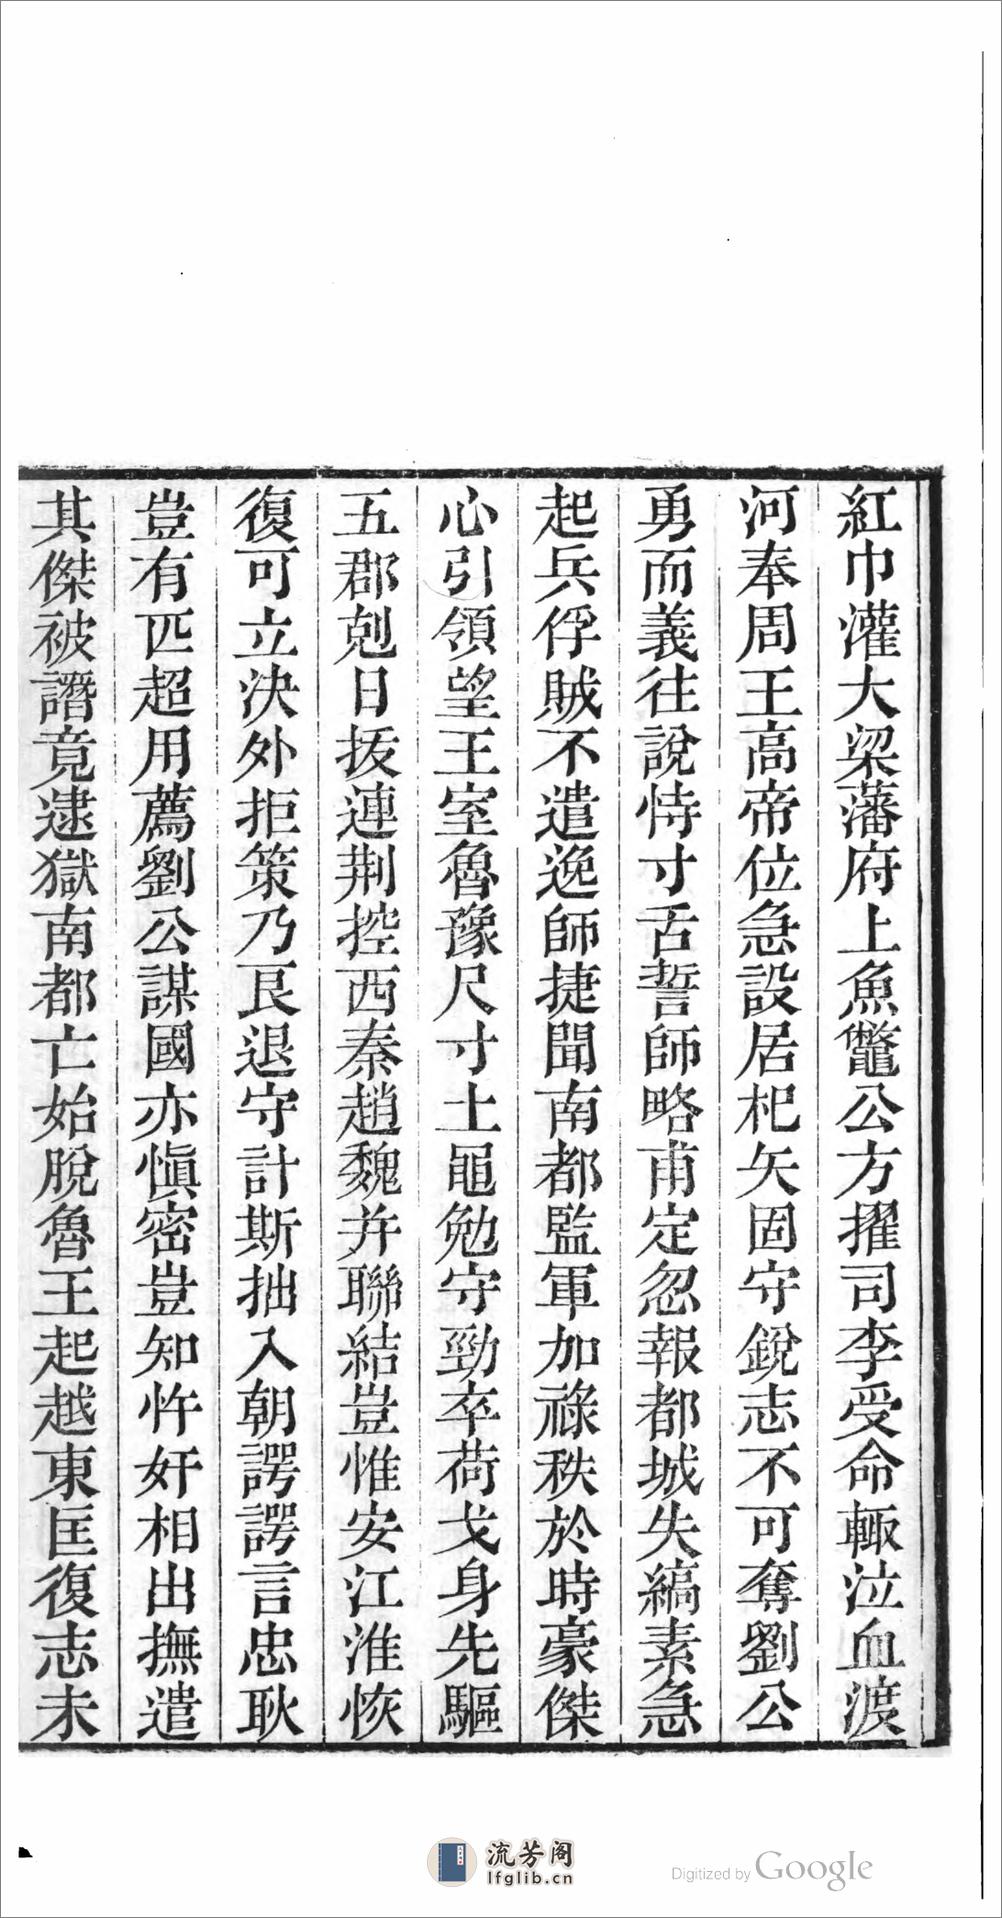 紅巾灌大梁藩府上魚鼈公方擢司李受命輙泣血渡
河奉周王高帝位急設居杞矢固守銳志不可奪劉公
勇而義往說恃寸舌誓師略甫定忽報都城失縞素急
起兵俘賊不遣逸師捷聞南都監軍加祿秩於時豪傑
心引領望王室魯豫尺寸土黽勉守勁卒荷戈身先驅
五郡剋日拔連荆控西秦趙魏并聯結豈惟安江淮恢
復可立決外拒策乃艮退守計斯拙入朝諤諤言忠耿
豈有匹超用薦劉公謀國亦愼密豈知忤奸相出撫遣
其傑被譖竟逮獄南都亡始脫魯王起越東匡復志未
流芳阁
lfglib.cn
Digitized by Google